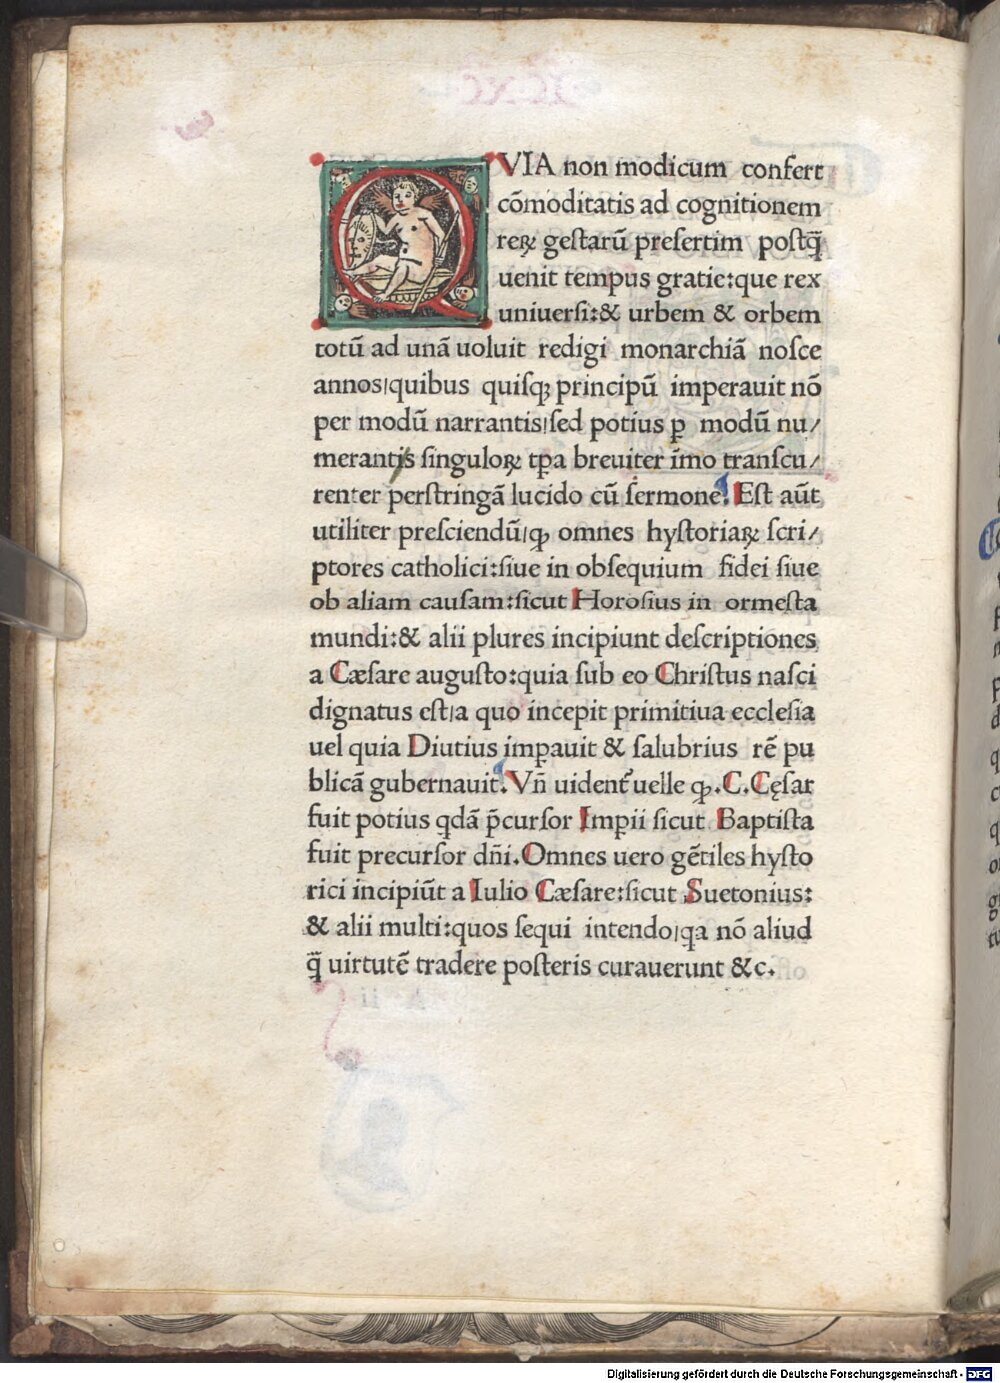 QVIA non modicum confert
cōmoditatis ad cognitionem
reꝝ geſtarū preſertim poſtq̄
uenit tempus gratie:que rex
uniuerſi:& urbem & orbem
totū ad unā uoluit redigi monarchiā noſce
annos|quibus quiſqꝫ principū imperauit nō
per modū narrantis|ſed potius ꝑ modū nu/
merantis ſinguloꝝ tp̄a breuiter īmo tranſcu/
renter perſtringā lucido cū ſermone. Eſt aūt
utiliter preſciendū|ꝙ omnes hyſtoriaꝝ ſcri/
ptores catholici:ſiue in obſequium fidei ſiue
ob aliam cauſam:ſicut Horoſius in ormeſta
mundi:& alii plures incipiunt deſcriptiones
a Cæſare auguſto:quia ſub eo Chriſtus naſci
dignatus eſt|a quo incepit primitiua eccleſia
uel quia Diutius imꝑauit & ſalubrius rē pu
blicā gubernauit. Vn̄ uident᷑ uelle ꝙ .C. Cęſar
fuit potius qdā p̄curſor Impii ſicut Baptiſta
fuit precurſor dn̄i. Omnes uero gētiles hyſto
rici incipiūt a Iulio Cæſare:ſicut Suetonius:
& alii multi:quos ſequi intendo|qa nō aliud
q̄ uirtutē tradere poſteris curauerunt &c.
Digitalisierung gefördert durch die Deutsche Forschungsgemeinschaft - DFG